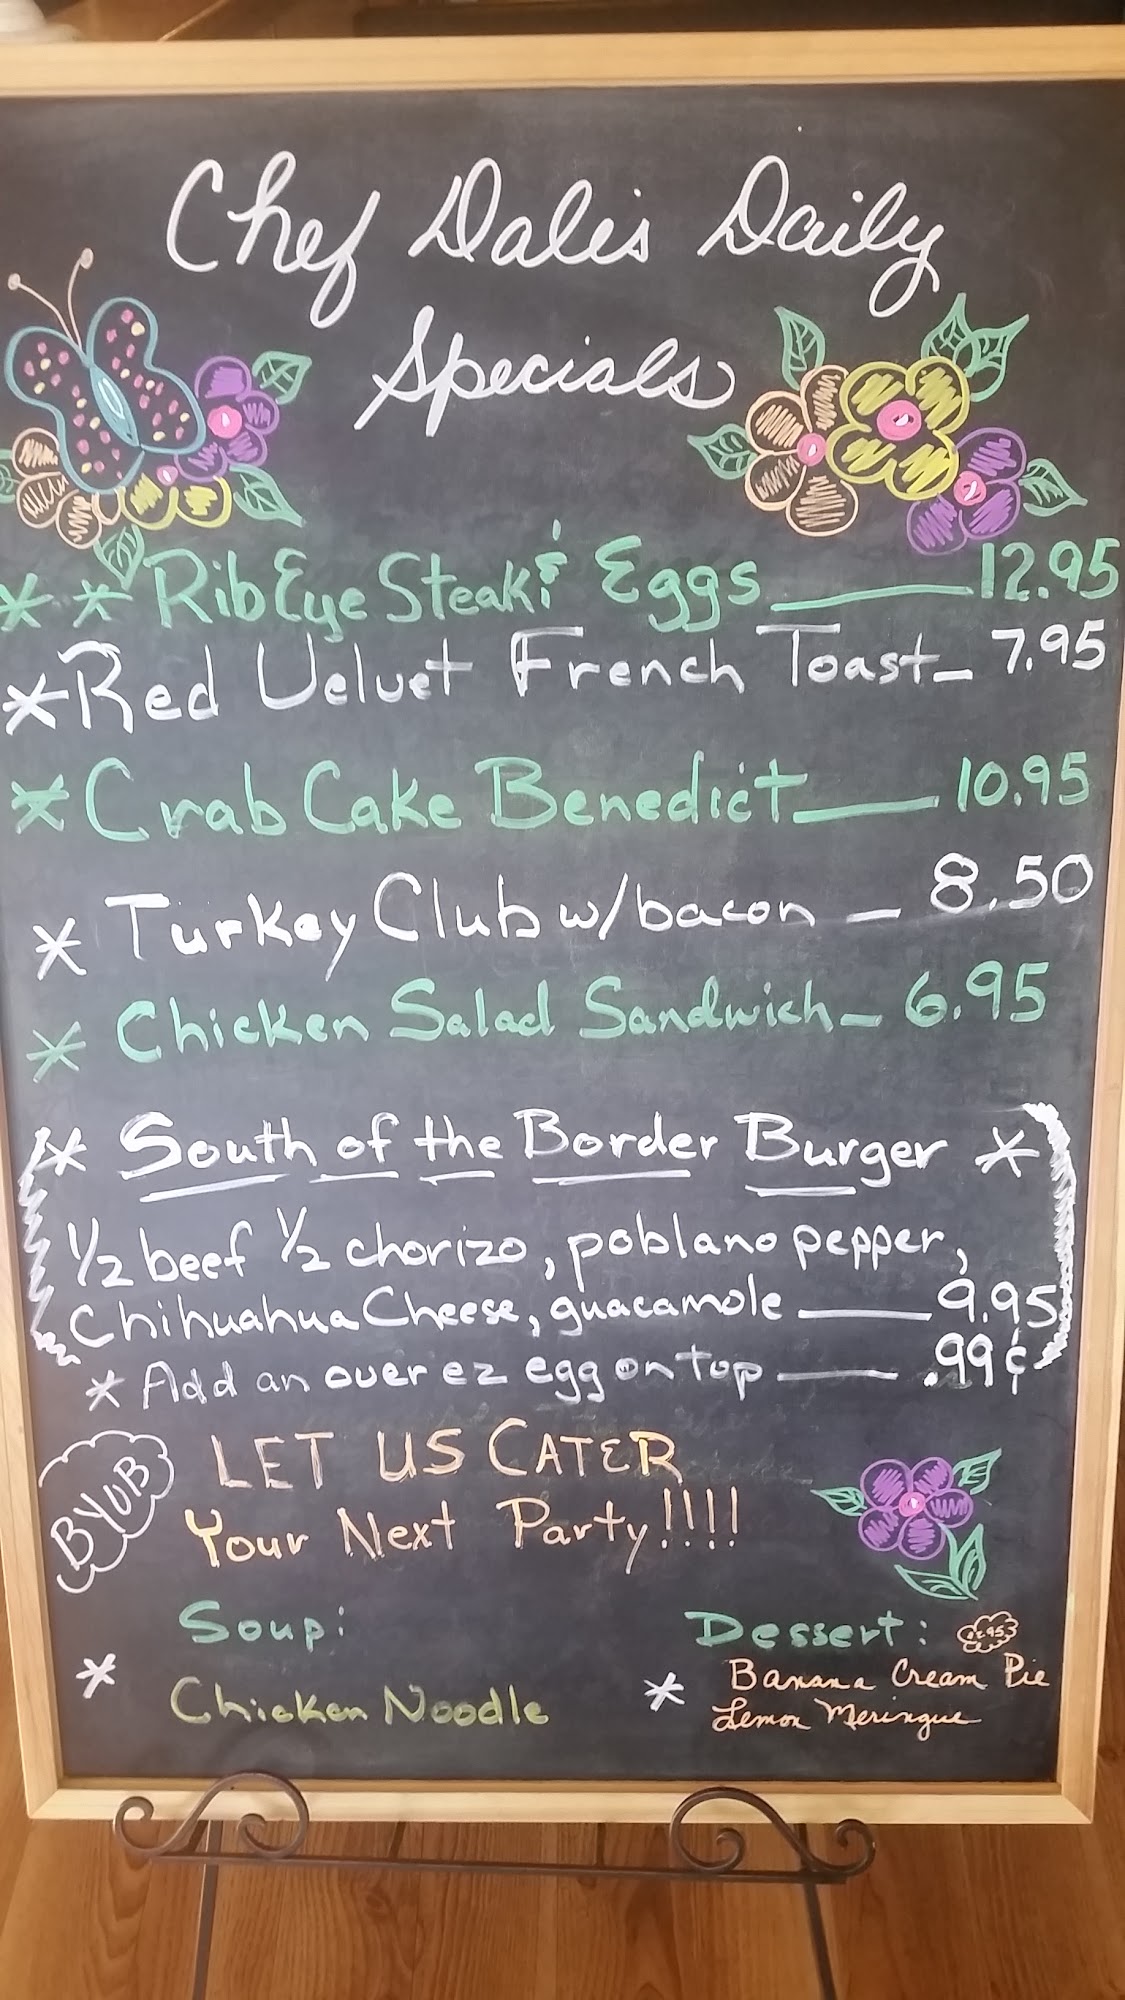 Chef Dales Daily
Specials
* * RibEye Steak & Eggs — 12.95
* Red Velvet French Toast — 7.95
* Crab Cake Benedict — 10.95
* Turkey Club w/bacon — 8.50
* Chicken Salad Sandwich — 6.95
* South of the Border Burger *
1/2 beef 1/2 chorizo, poblano pepper,
Chihuahua Cheese, guacamole — 9.95
* Add an over ez egg on top — .99¢
BYOB
LET US CATER
Your Next Party!!!!
Soup:
* Chicken Noodle
Dessert:
* Banana Cream Pie
Lemon Meringue